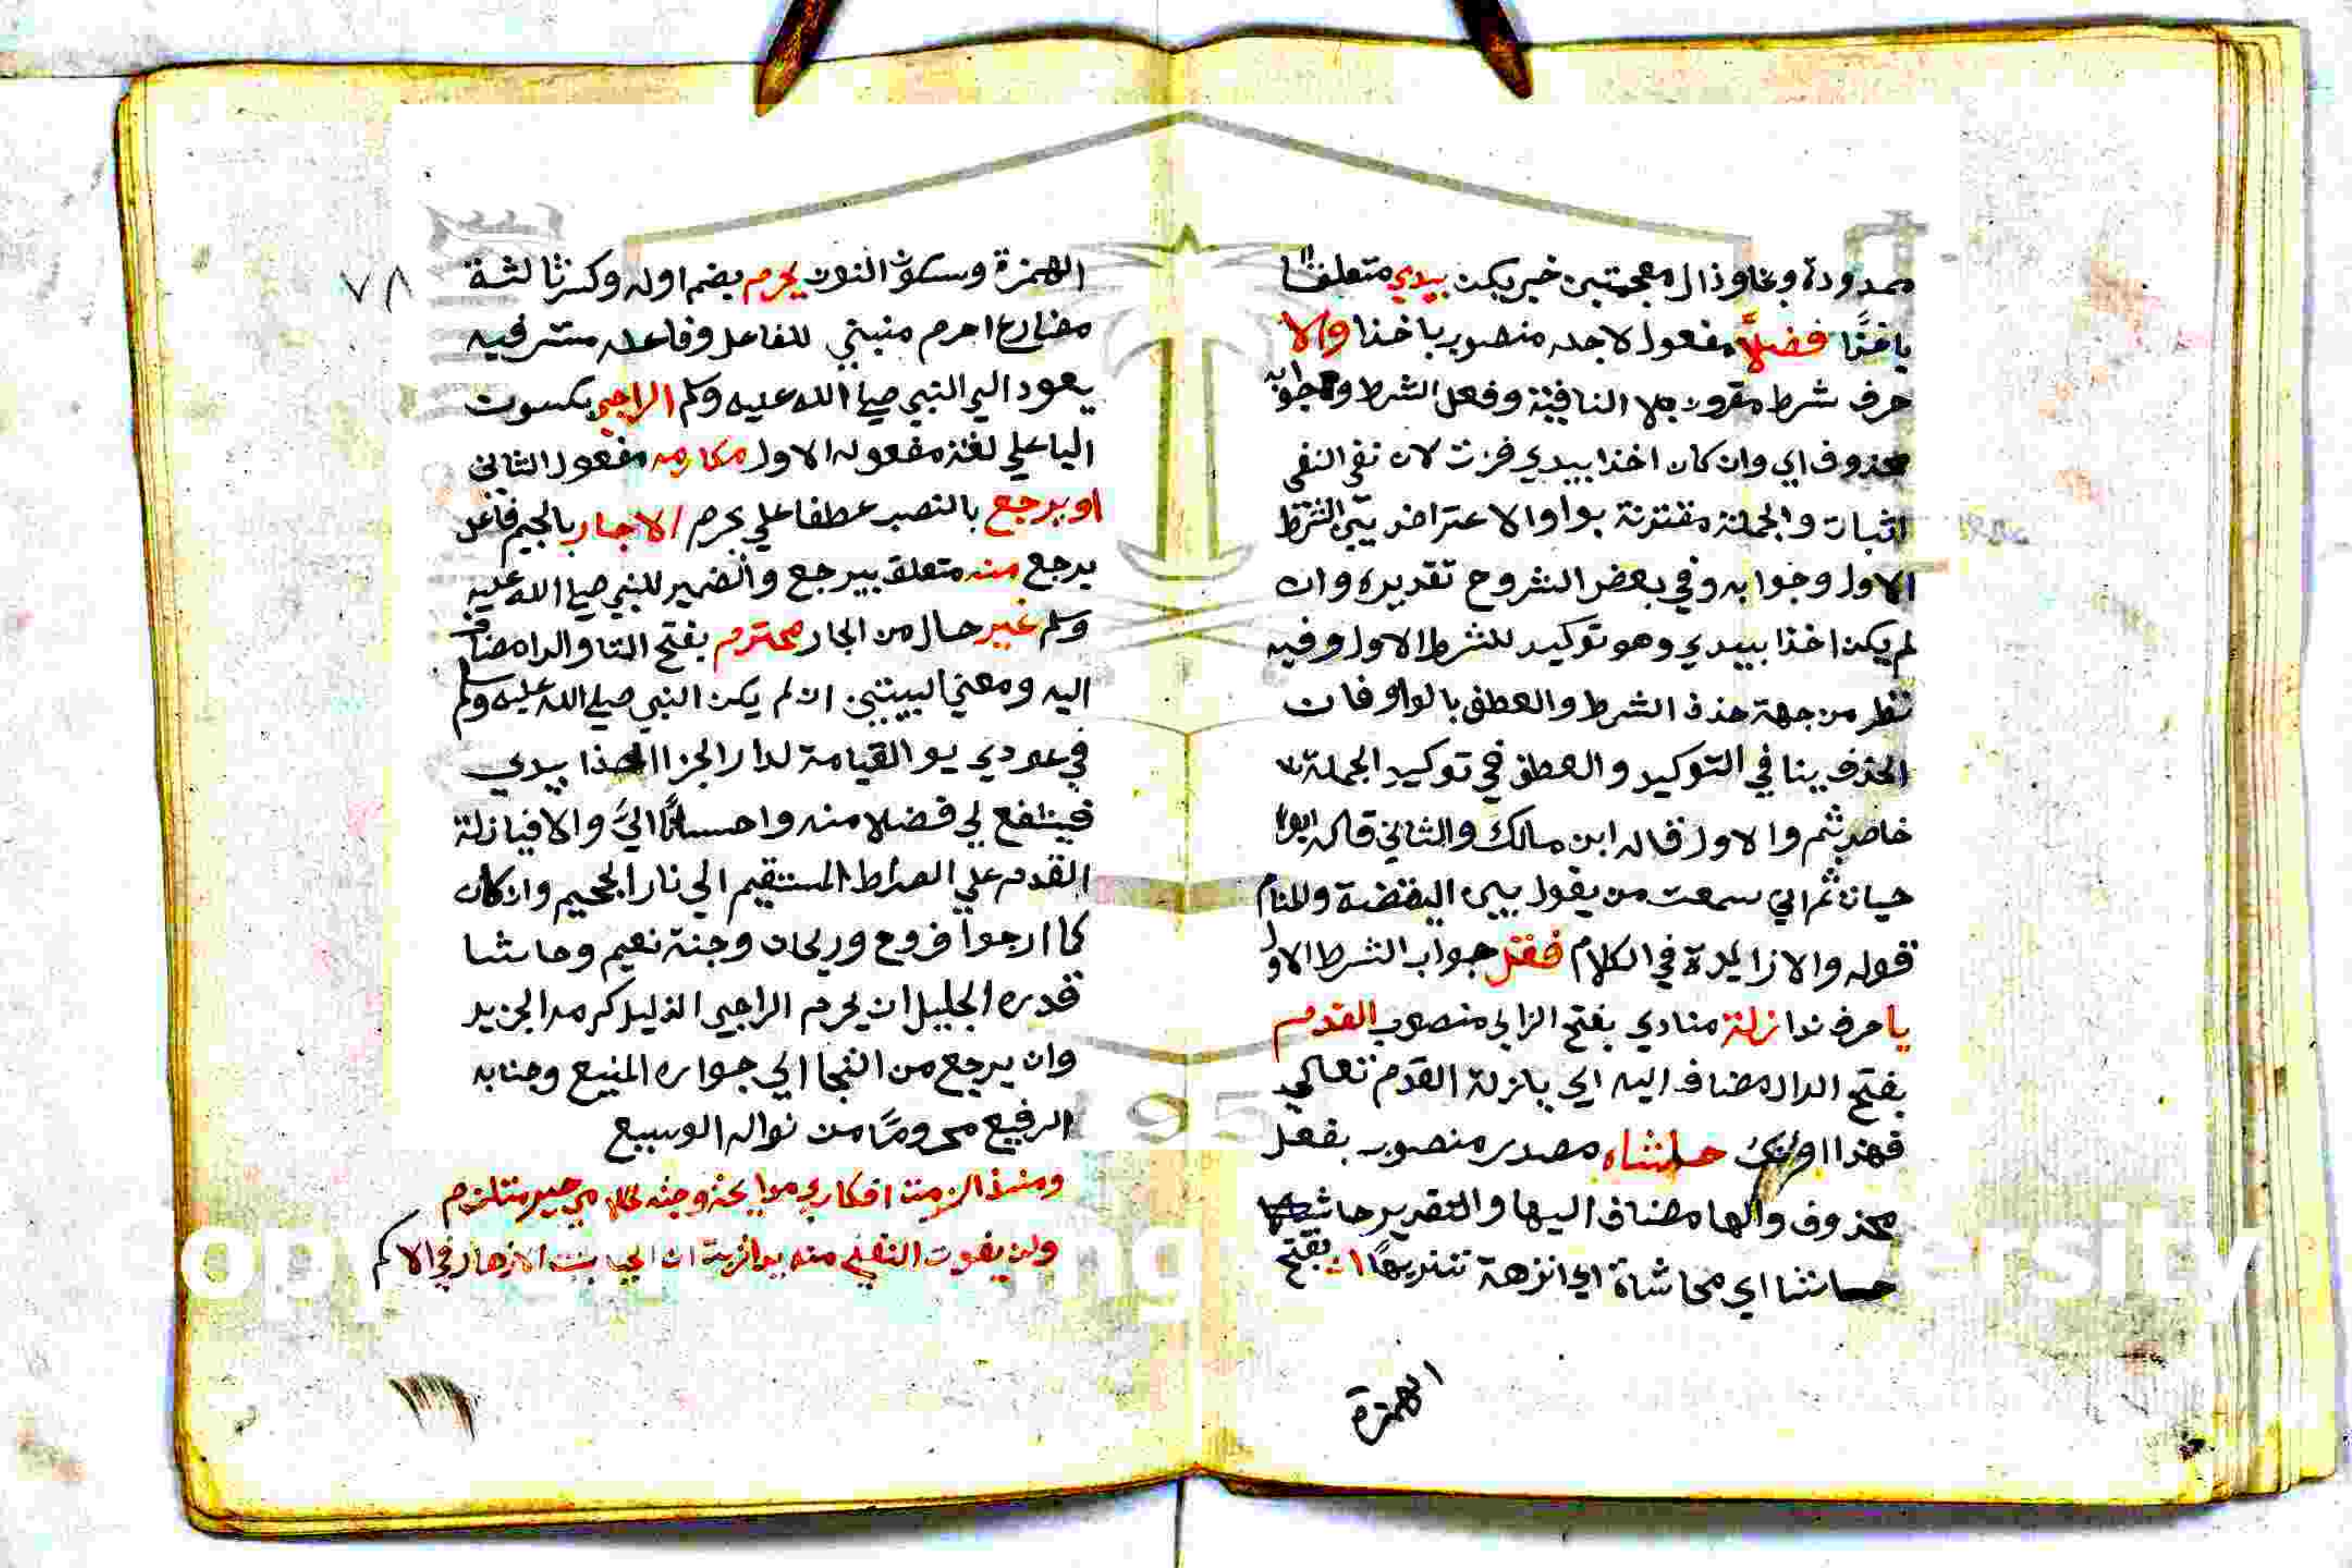 ممدودة وخا وذال معجمتين خبر يكن بيدي متعلق
باخذا فضلاً مفعول لاجله منصوب باخذا والا
حرف شرط مقرون بلا النافية وفعل الشرط وجوابه
محذوف اي وان كان اخذا بيدي فزت لان نفي النفي
اثبات والجملة مقترنة بواو الاعتراض بين الشرط
الاول وجوابه وفي بعض الشروح تقديره وان
لم يكن اخذا بيدي وهو توكيد للشرط الاول وفيه
نظر من جهة حذف الشرط والعطف بالواو فان
الحذف ينافي التوكيد والعطف في توكيد الجملة
خاص بثم والاول قاله ابن مالك والثاني قاله ابو
حيان ثم اني سمعت من يقول بين اليقضة والمنام
قوله والا زايدة في الكلام فقل جواب الشرط الاول
يا حرف ندا زلة منادي بفتح الزاي منصوب القدم
بفتح الدال مضاف اليه اي يا زلة القدم تعالي
فهذا اوانك حاشاه مصدر منصوب بفعل
محذوف والها مضاف اليها والتقدير
حاشا اي محاشاة اي انزهة تنزيها ان بفتح
الهمزة
٧٨
الهمزة وسكون النون يحرم بضم اوله وكسر ثالثة
مضارع احرم مبني للفاعل وفاعله مستتر فيه
يعود الي النبي صلي الله عليه وسلم الراجي بسكون
اليا علي لغة مفعوله الاول مكارمه مفعول الثاني
او يرجع بالنصب عطفا علي يحرم الاجار بالجيم فاعل
يرجع منه متعلق بيرجع والضمير للنبي صلي الله عليه
وسلم غير حال من الجار محترم بفتح التا والرا مضاف
اليه ومعني البيتين ان لم يكن النبي صلي الله عليه وسلم
في عودي يو القيامة لدار الجزا اخذا بيدي
فينفع لي فضلا منه واحسانًا اليَّ والا فيا زلة
القدم علي الصراط المستقيم الي نار الجحيم وان كان
كما ارجوا فروح وريحان وجنة نعيم وحاشا
قدره الجليل ان يحرم الراجي الذليل كرمه الجزيد
وان يرجع من النجا الي جواره المنيع وجنابه
الرفيع محرومًا من نواله الوسيع
ومنذ الزمت افكاري مدايحه وجدته لخلاصي خير ملتزم
ولن يفوت الغني منه يدا تربت ان الحيا ينبت الازهار في الاكم